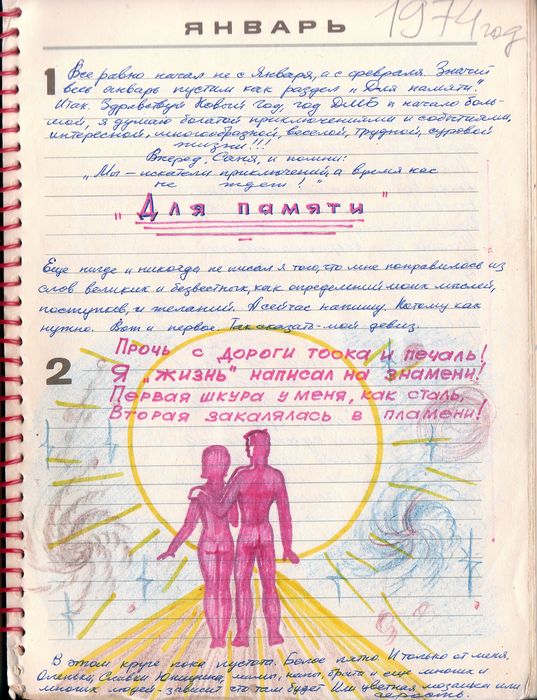 ЯНВАРЬ
1974 год
1 Все равно начал не с Января, а с февраля. Значит
весь январь пустим как раздел „Для памяти".
Итак. Здравствуй Новый Год, год ДМБ и начало боль-
шой, я думаю богатой приключениями и событиями,
интересной, многообразной, веселой, трудной, суровой
жизни!!!
Вперед, Саня, и помни:
„Мы – искатели приключений, а время нас
не ждет!"
„Для памяти"
Еще нигде и никогда не писал я того, что мне понравилось из
слов великих и безвестных, как определений моих мыслей,
поступков, и желаний. А сейчас напишу. Потому как
нужно. Вот и первое. Так сказать – мой девиз.
2
Прочь с дороги тоска и печаль!
Я „Жизнь" написал на знамени!
Первая шкура у меня, как сталь,
Вторая закалялась в пламени!
В этом круге пока пустота. Белое пятно. И только от меня,
Оленьки, Славки Юницина, мамы, папы, брата и еще многих и
многих людей – зависит что там будет. Или цветная мозаика или
серость.